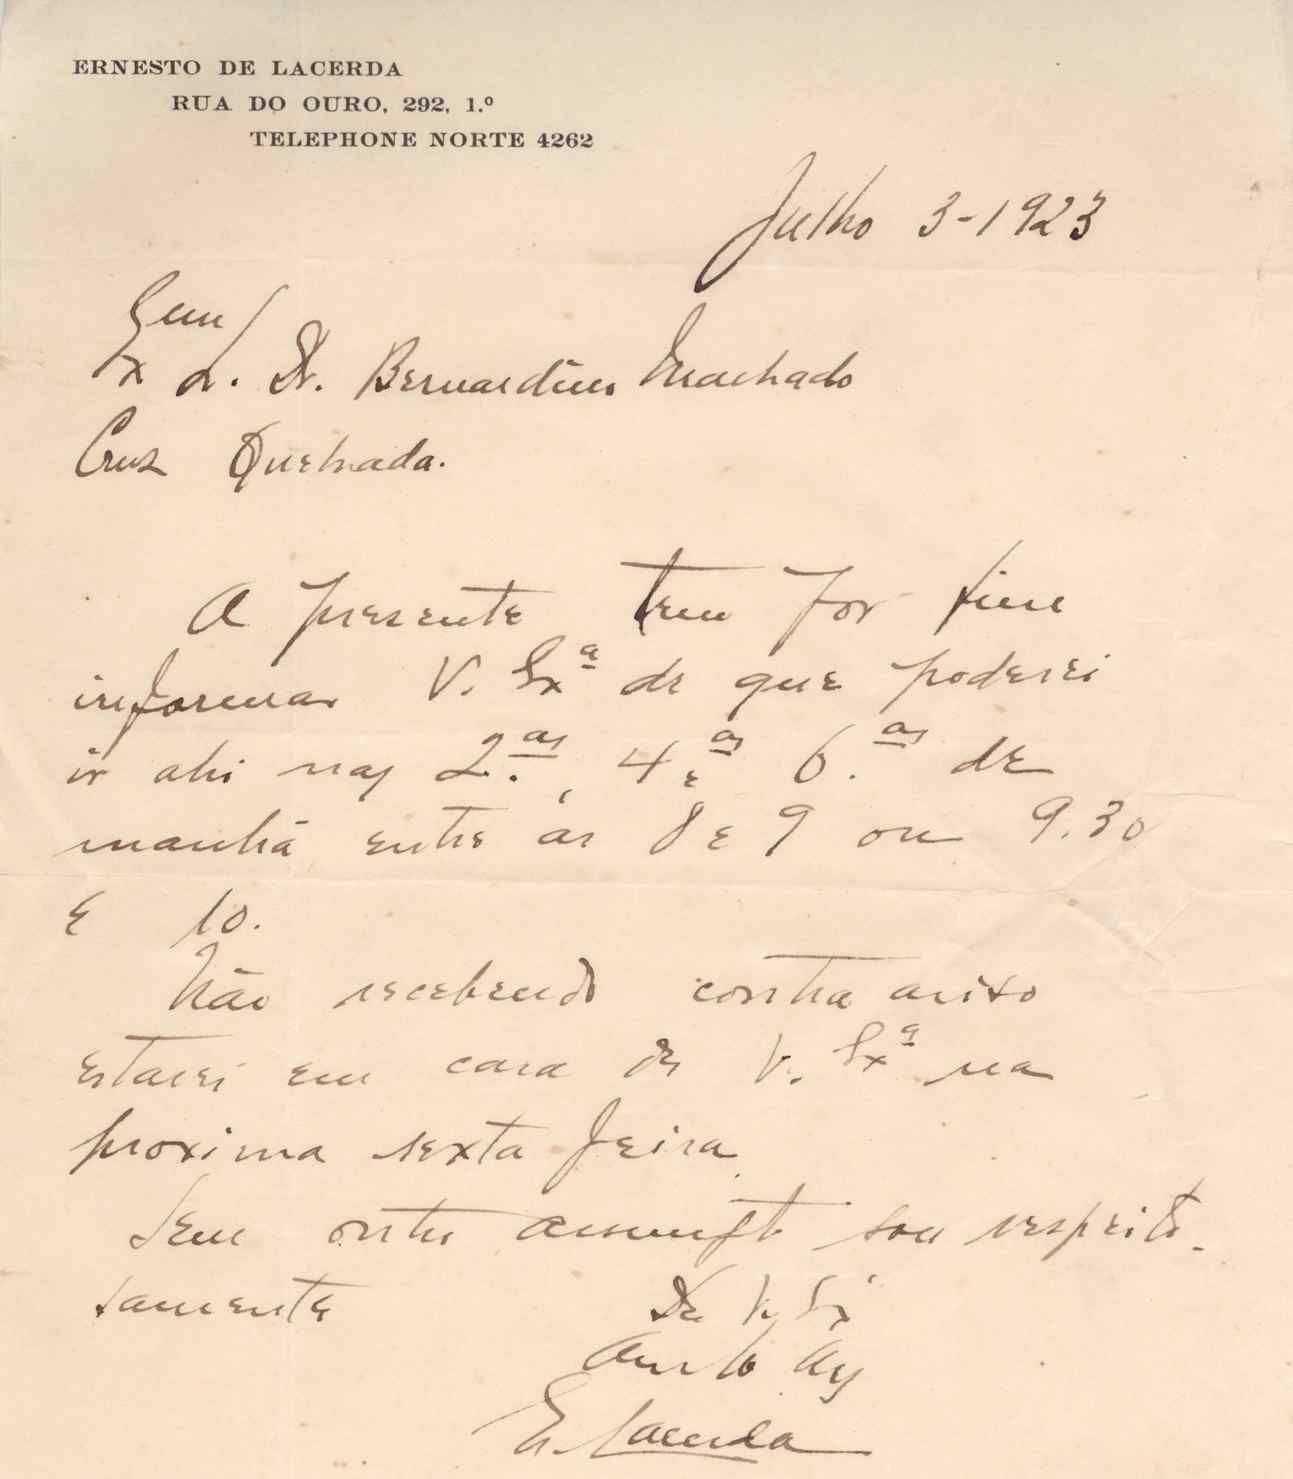 ERNESTO DE LACERDA
RUA DO OURO, 292, 1.º
TELEPHONE NORTE 4262
Julho 3-1923
Exmo Sr. Dr. Bernardino Machado
Cruz Quebrada.
A presente tem por fim
informar V. Exª de que poderei
ir ahi nas 2.as, 4.as e 6.as de
manhã entre as 8 e 9 ou 9.30
e 10.
Não recebendo contra aviso
estarei em casa de V. Exª na
proxima sexta feira
Sem outro assumpto sou respeito-
samente
De V. Exª
E. Lacerda